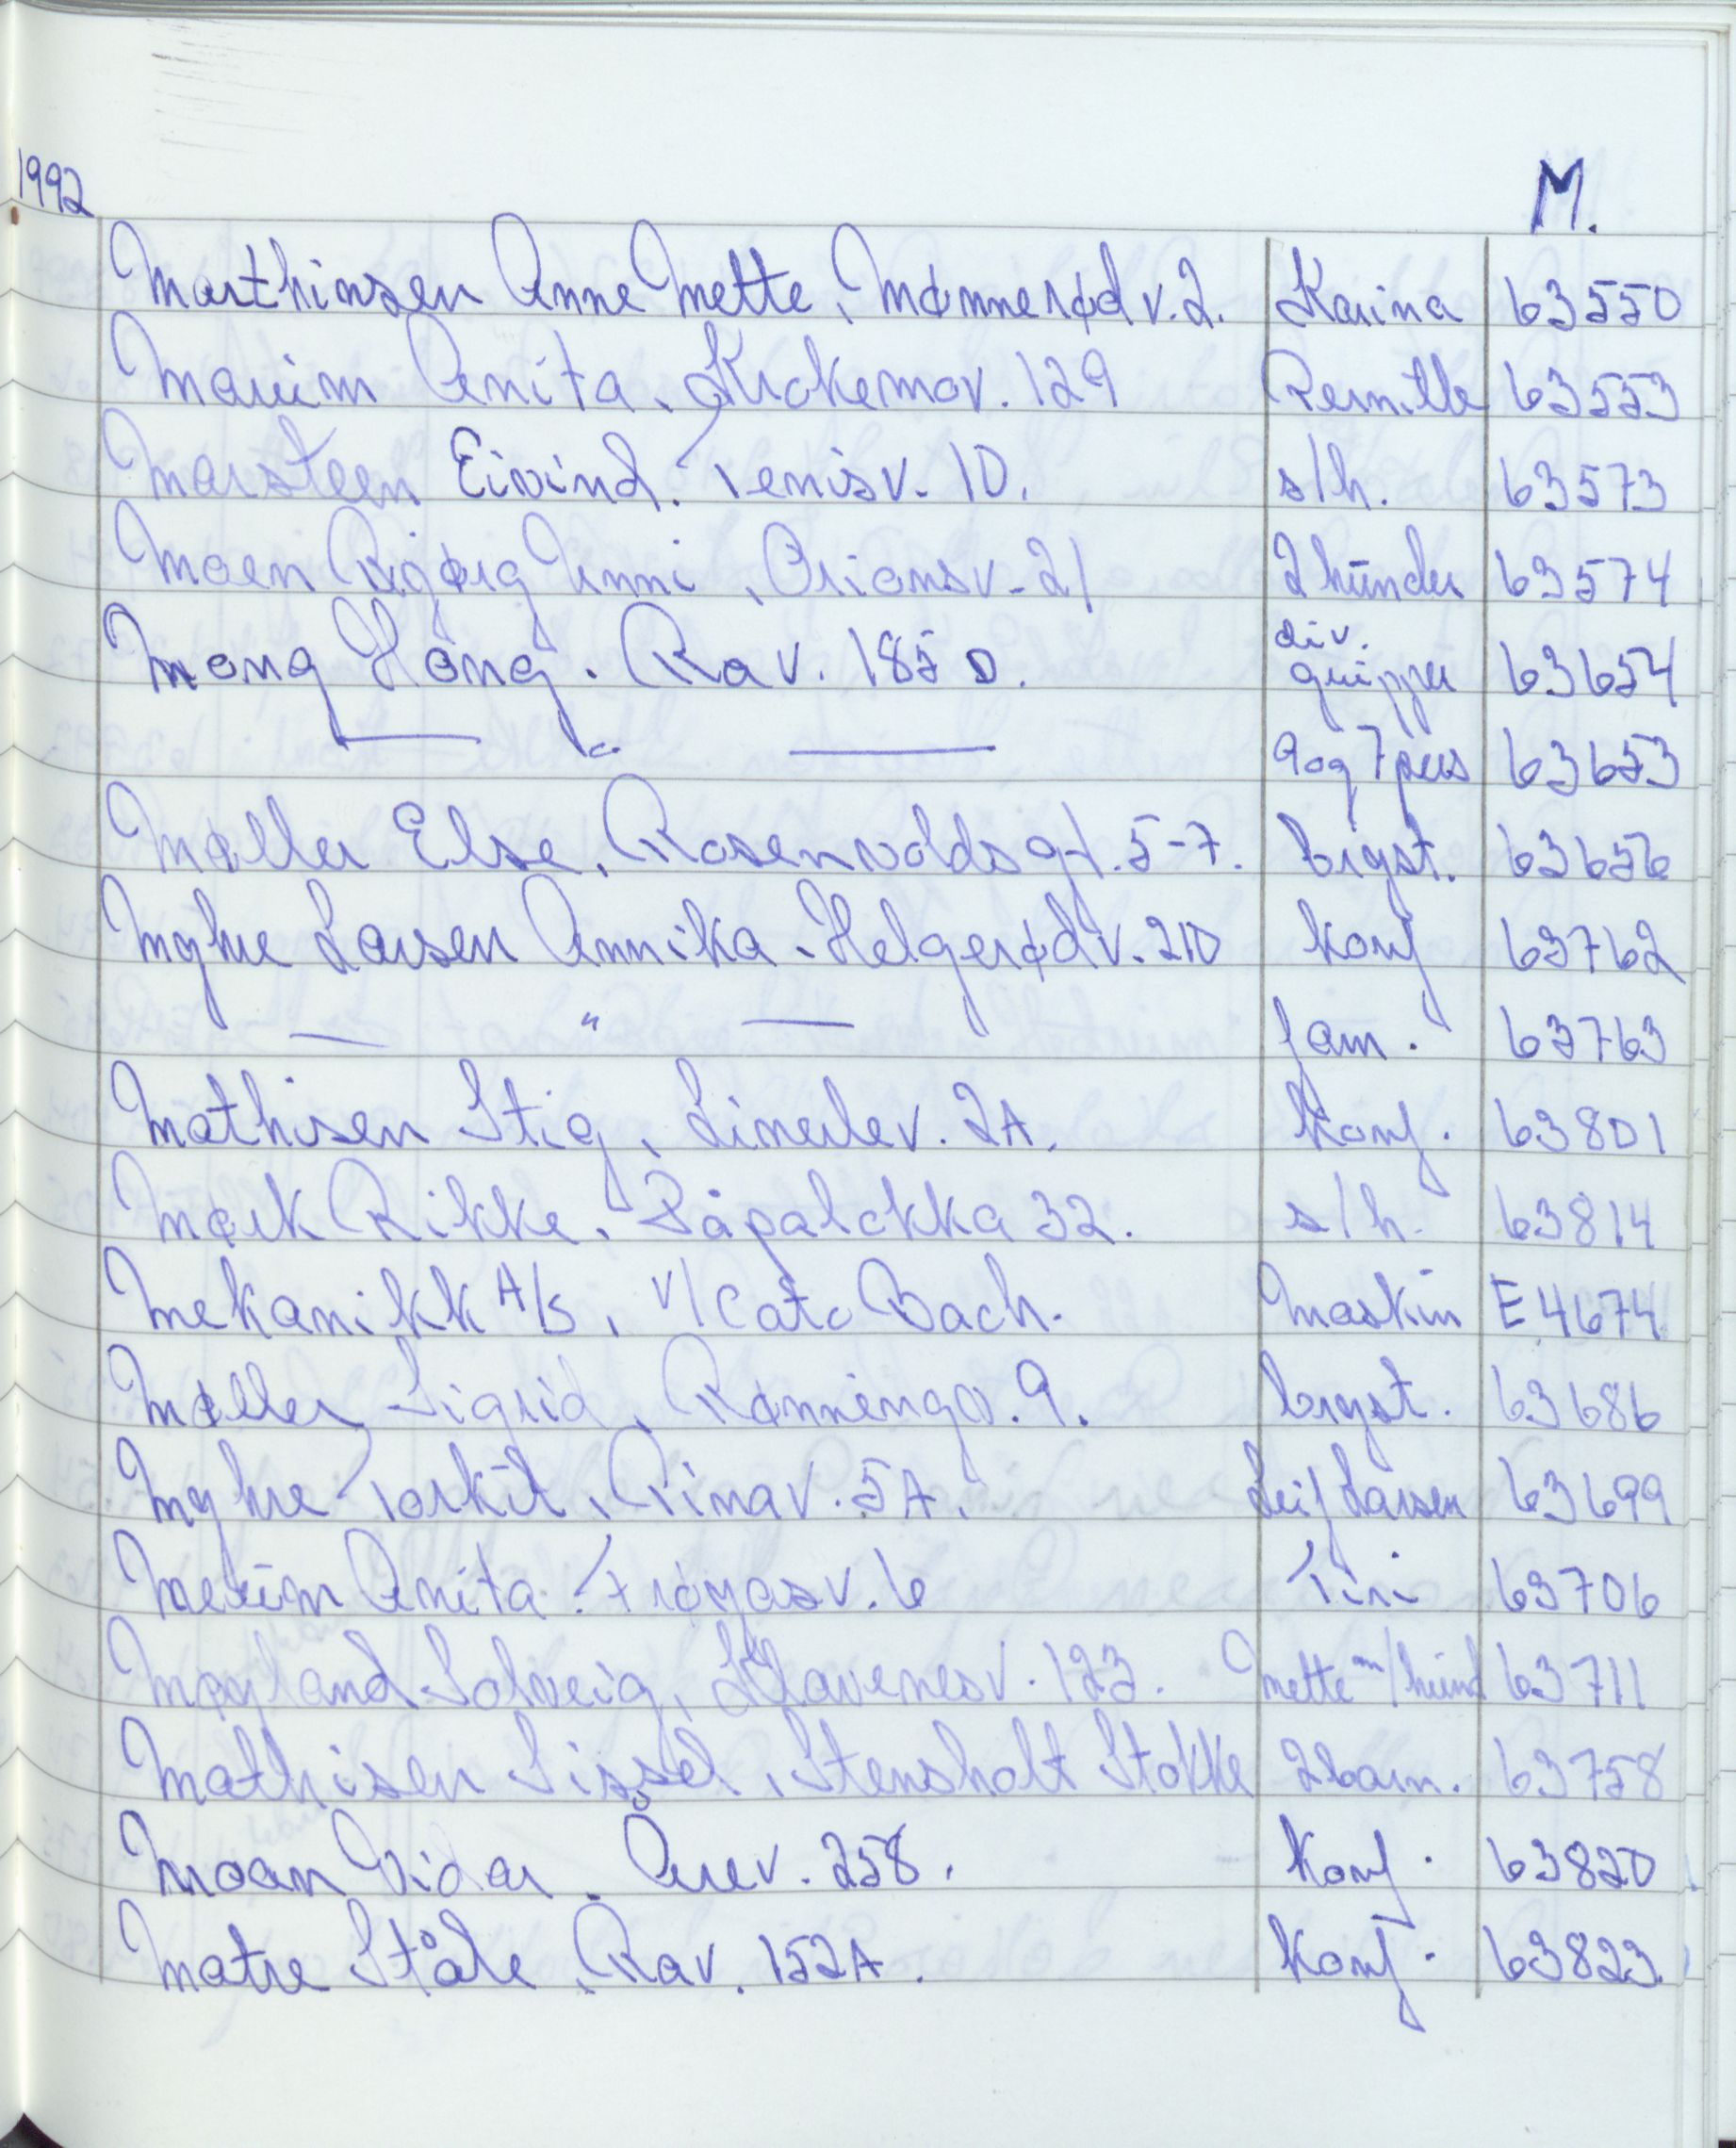 1992
M.
Marthinsen Anne Mette, Mønnerød v. 2. Karina 63550
Anita. Krokemov. 129 Pernille 63553
Marsteen Eivind. Tenisv. 10. s/h. 63573
Moen Bjørg Unni, Orionsv. 21 2 hunder 63574
Mong Hong. Rav. 185 D. div. grupper 63654
— " — 9 og 7 pers 63653
Møller Else. Rosenvolds gt. 5-7. bryst. 63656
Myhre Larsen Annika. Helgerødv. 210 Konf 63762
— " — fam. 63763
Mathisen Stig, Linerlev. 2A. Konf. 63801
Mørk Rikke. Påpaløkka 32. s/h. 63814
Mekanikk A/S, v/Cato Bach. Maskin E4674
Møller Sigrid, Rønningv. 9. bryst. 63686
Myhre Torkil, Rimav. 5A. Leif Larsen 63699
Anita. Frøyasv. 6 Tini 63706
Møyland Solveig, Klavenesv. 123. Mette m/hund 63711
Mathisen Sissel, Stensholt Stokke 2 barn. 63758
Moan Vidar. Årev. 258. Konf. 63820
Matre Ståle, Rav. 152A. Konf. 63823.